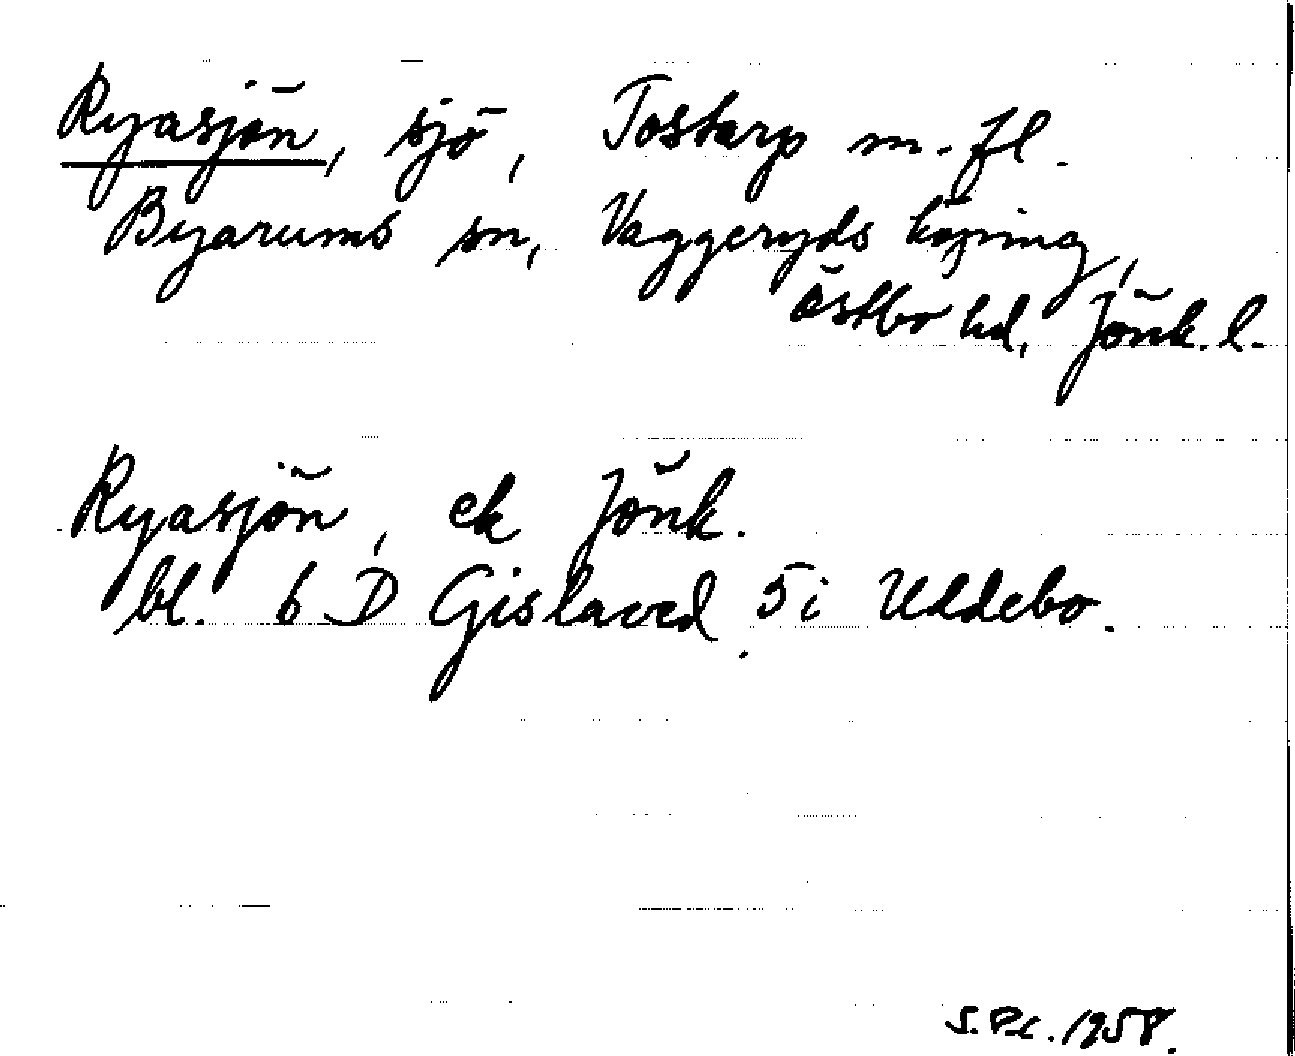 Ryasjön, sjö, Tostarp m. fl.
Byarums sn, Vaggeryds köping,
Östbo hd, Jönk. l.
Ryasjön, ek Jönk.
bl. 6 D Gislaved 5i Uddebo.
1958.